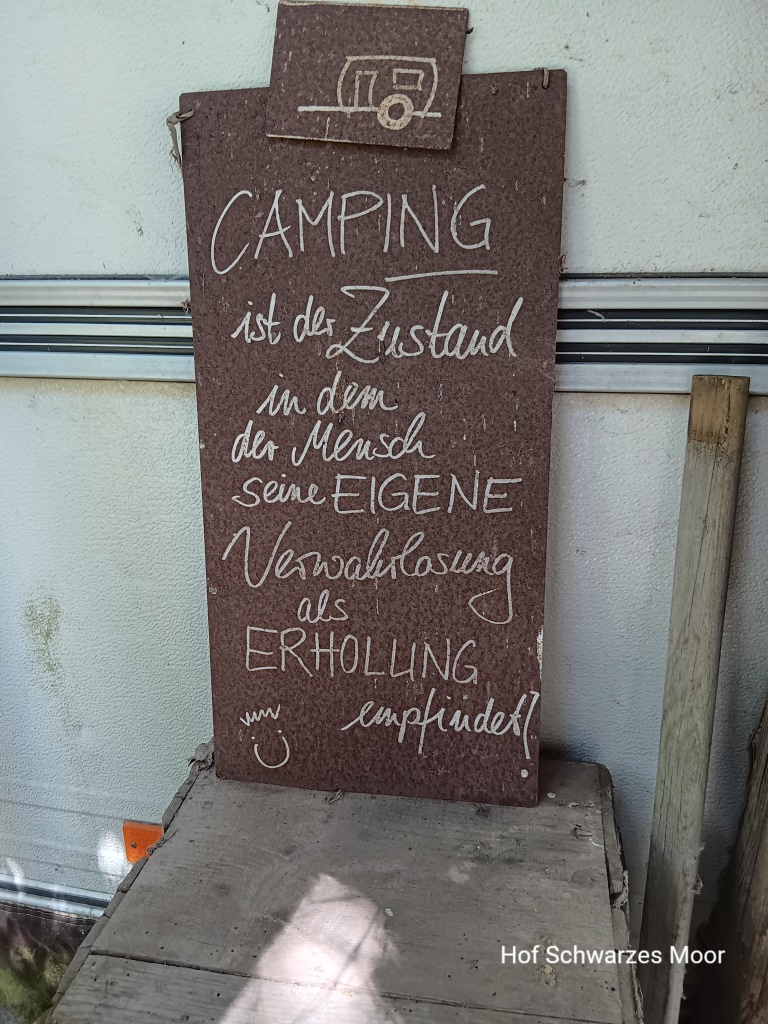 CAMPING
ist der Zustand
in dem
der Mensch
seine EIGENE
Verwahrlosung
als
ERHOLUNG
empfindet!
Hof Schwarzes Moor